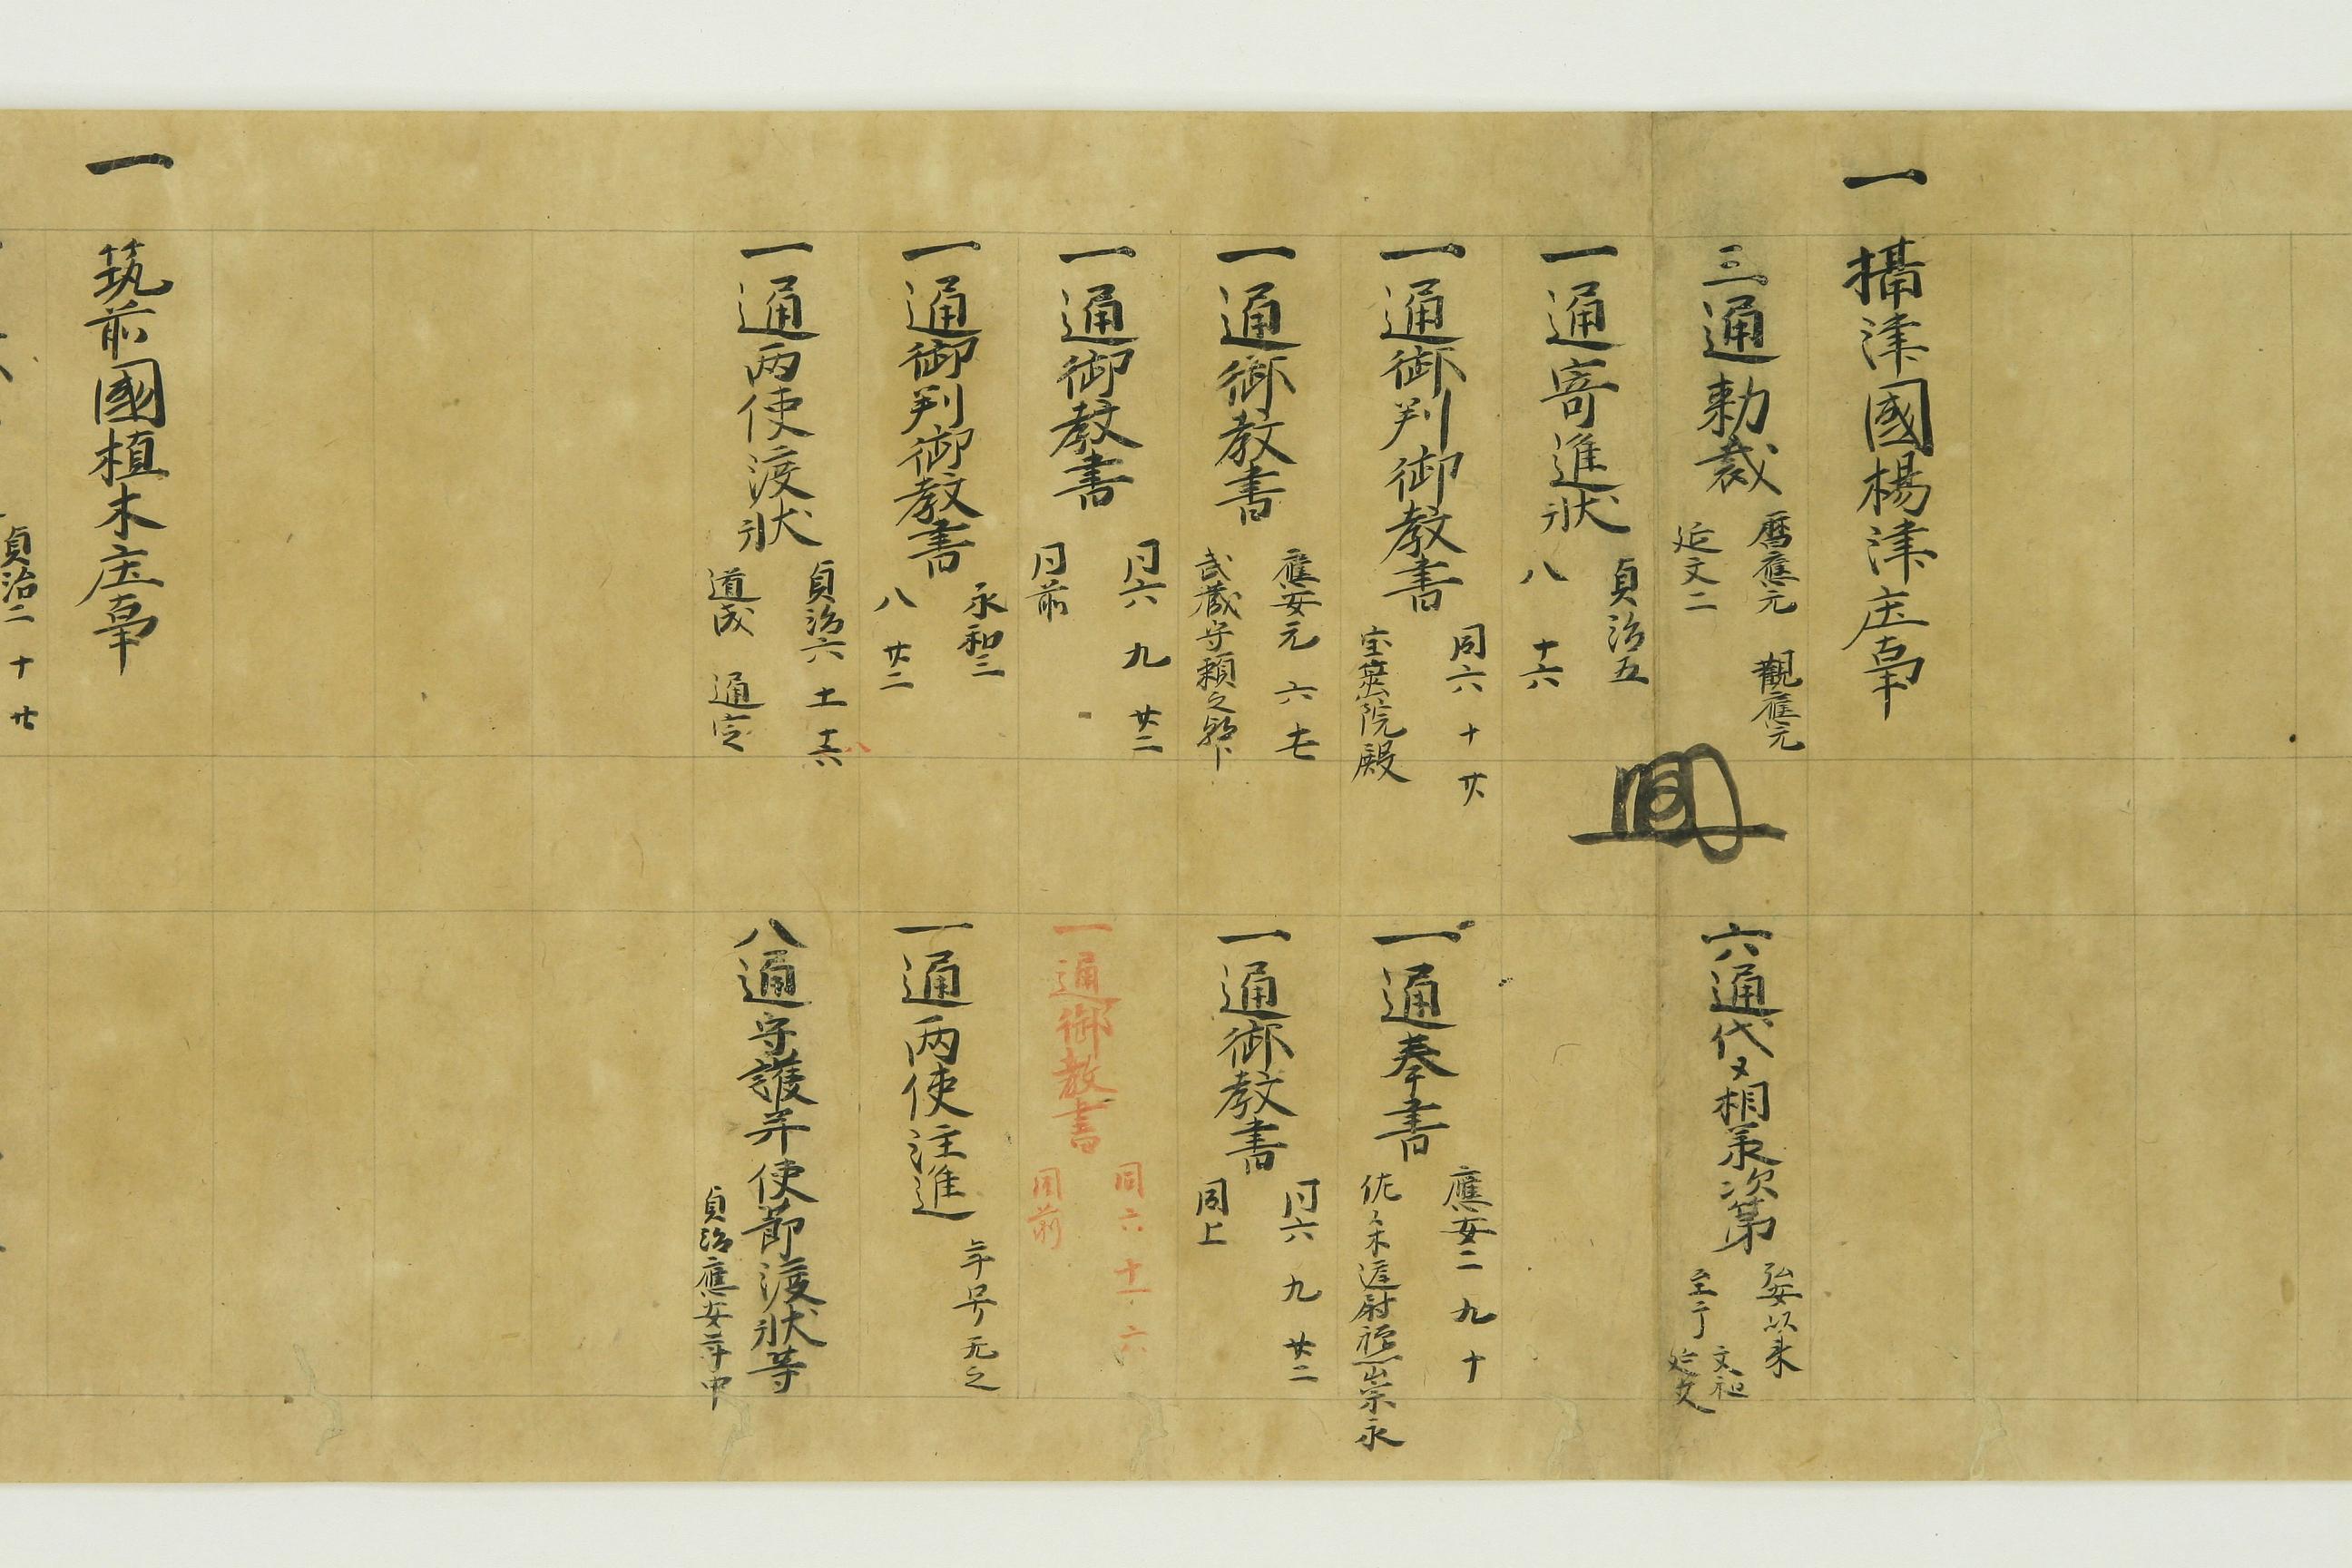 一 攝津國楊津庄事
三通勅裁 暦應元 觀應元
延文二
六通代々相承次第 弘安以来
至于 文和
延文
一通寄進状 貞治五
八 十六
一通御判御教書 同六 十 廿八
宝篋院殿
一通奉書 應安二 九 十
佐々木遠尉禅門崇永
一通御教書 應安元 六 十七
武蔵守頼之朝卜
一通御教書 同六 九 廿二
同上
一通御教書 同六 九 廿二
同前
一通御教書 同六 十一 六
同前
一通御判御教書 永和三
八 廿二
一通両使注進 年号无之
一通両使渡状 貞治六 十一 十六
八
道成 通定
八通守護并使節渡状等
貞治應安年中
一 筑前國植木庄事
貞治二 十 廿